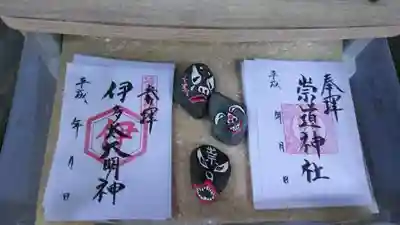 奉拝
崇道神社
平成 年 月 日
奉拝
伊多太大明神
平成 年 月 日